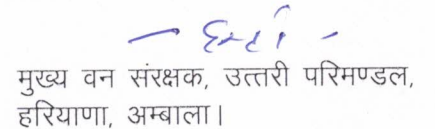 मुख्य वन संरक्षक, उत्तरी परिमण्डल,
हरियाणा, अम्बाला।